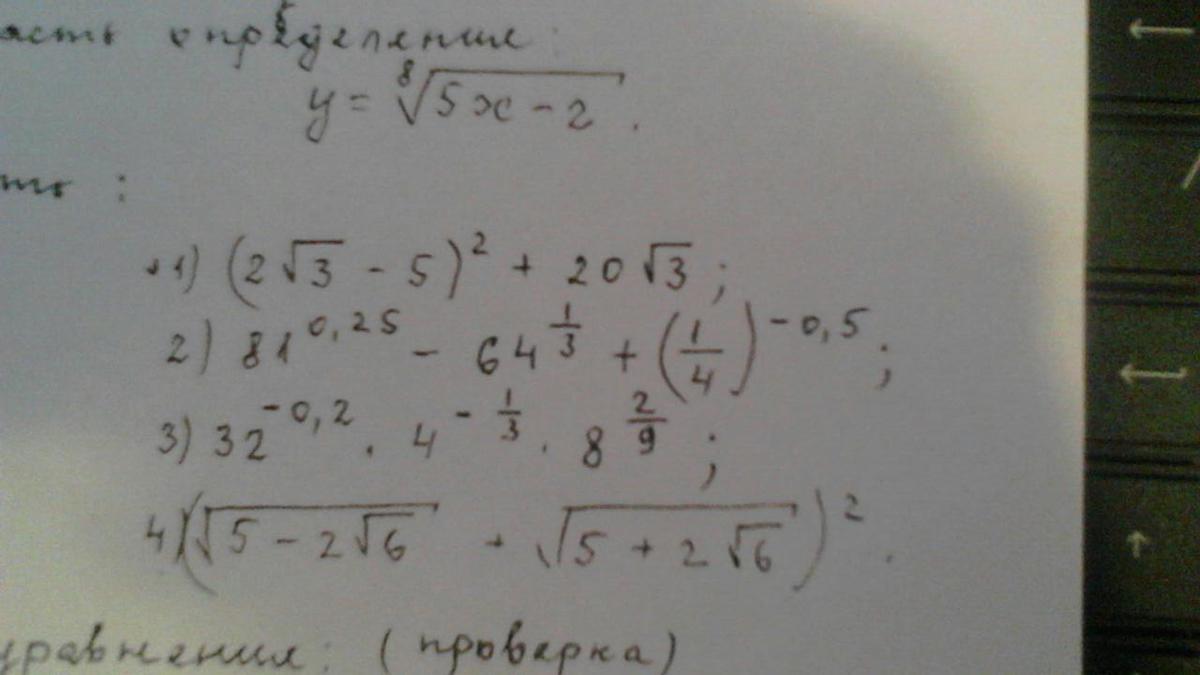 асть определения:
y = ⁸√(5x - 2).
ть:
1) (2√3 - 5)² + 20√3;
2) 81^0,25 - 64^(1/3) + (1/4)^-0,5;
3) 32^-0,2 · 4^(-1/3) · 8^(2/9);
4) (√(5 - 2√6) + √(5 + 2√6))².
уравнения: (проверка)